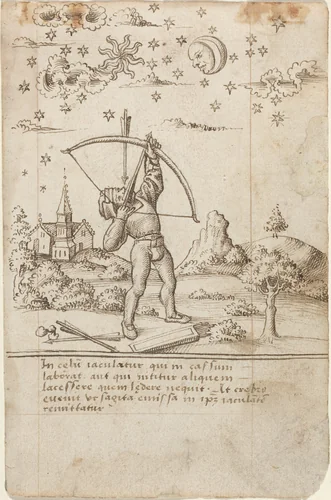 In celū iaculatur qui in cassum
laborat. aut qui nititur aliquem
lacessere quem ledere nequit. At crebro
evenit ut sagita emissa in ipm iaculatē
remittatur